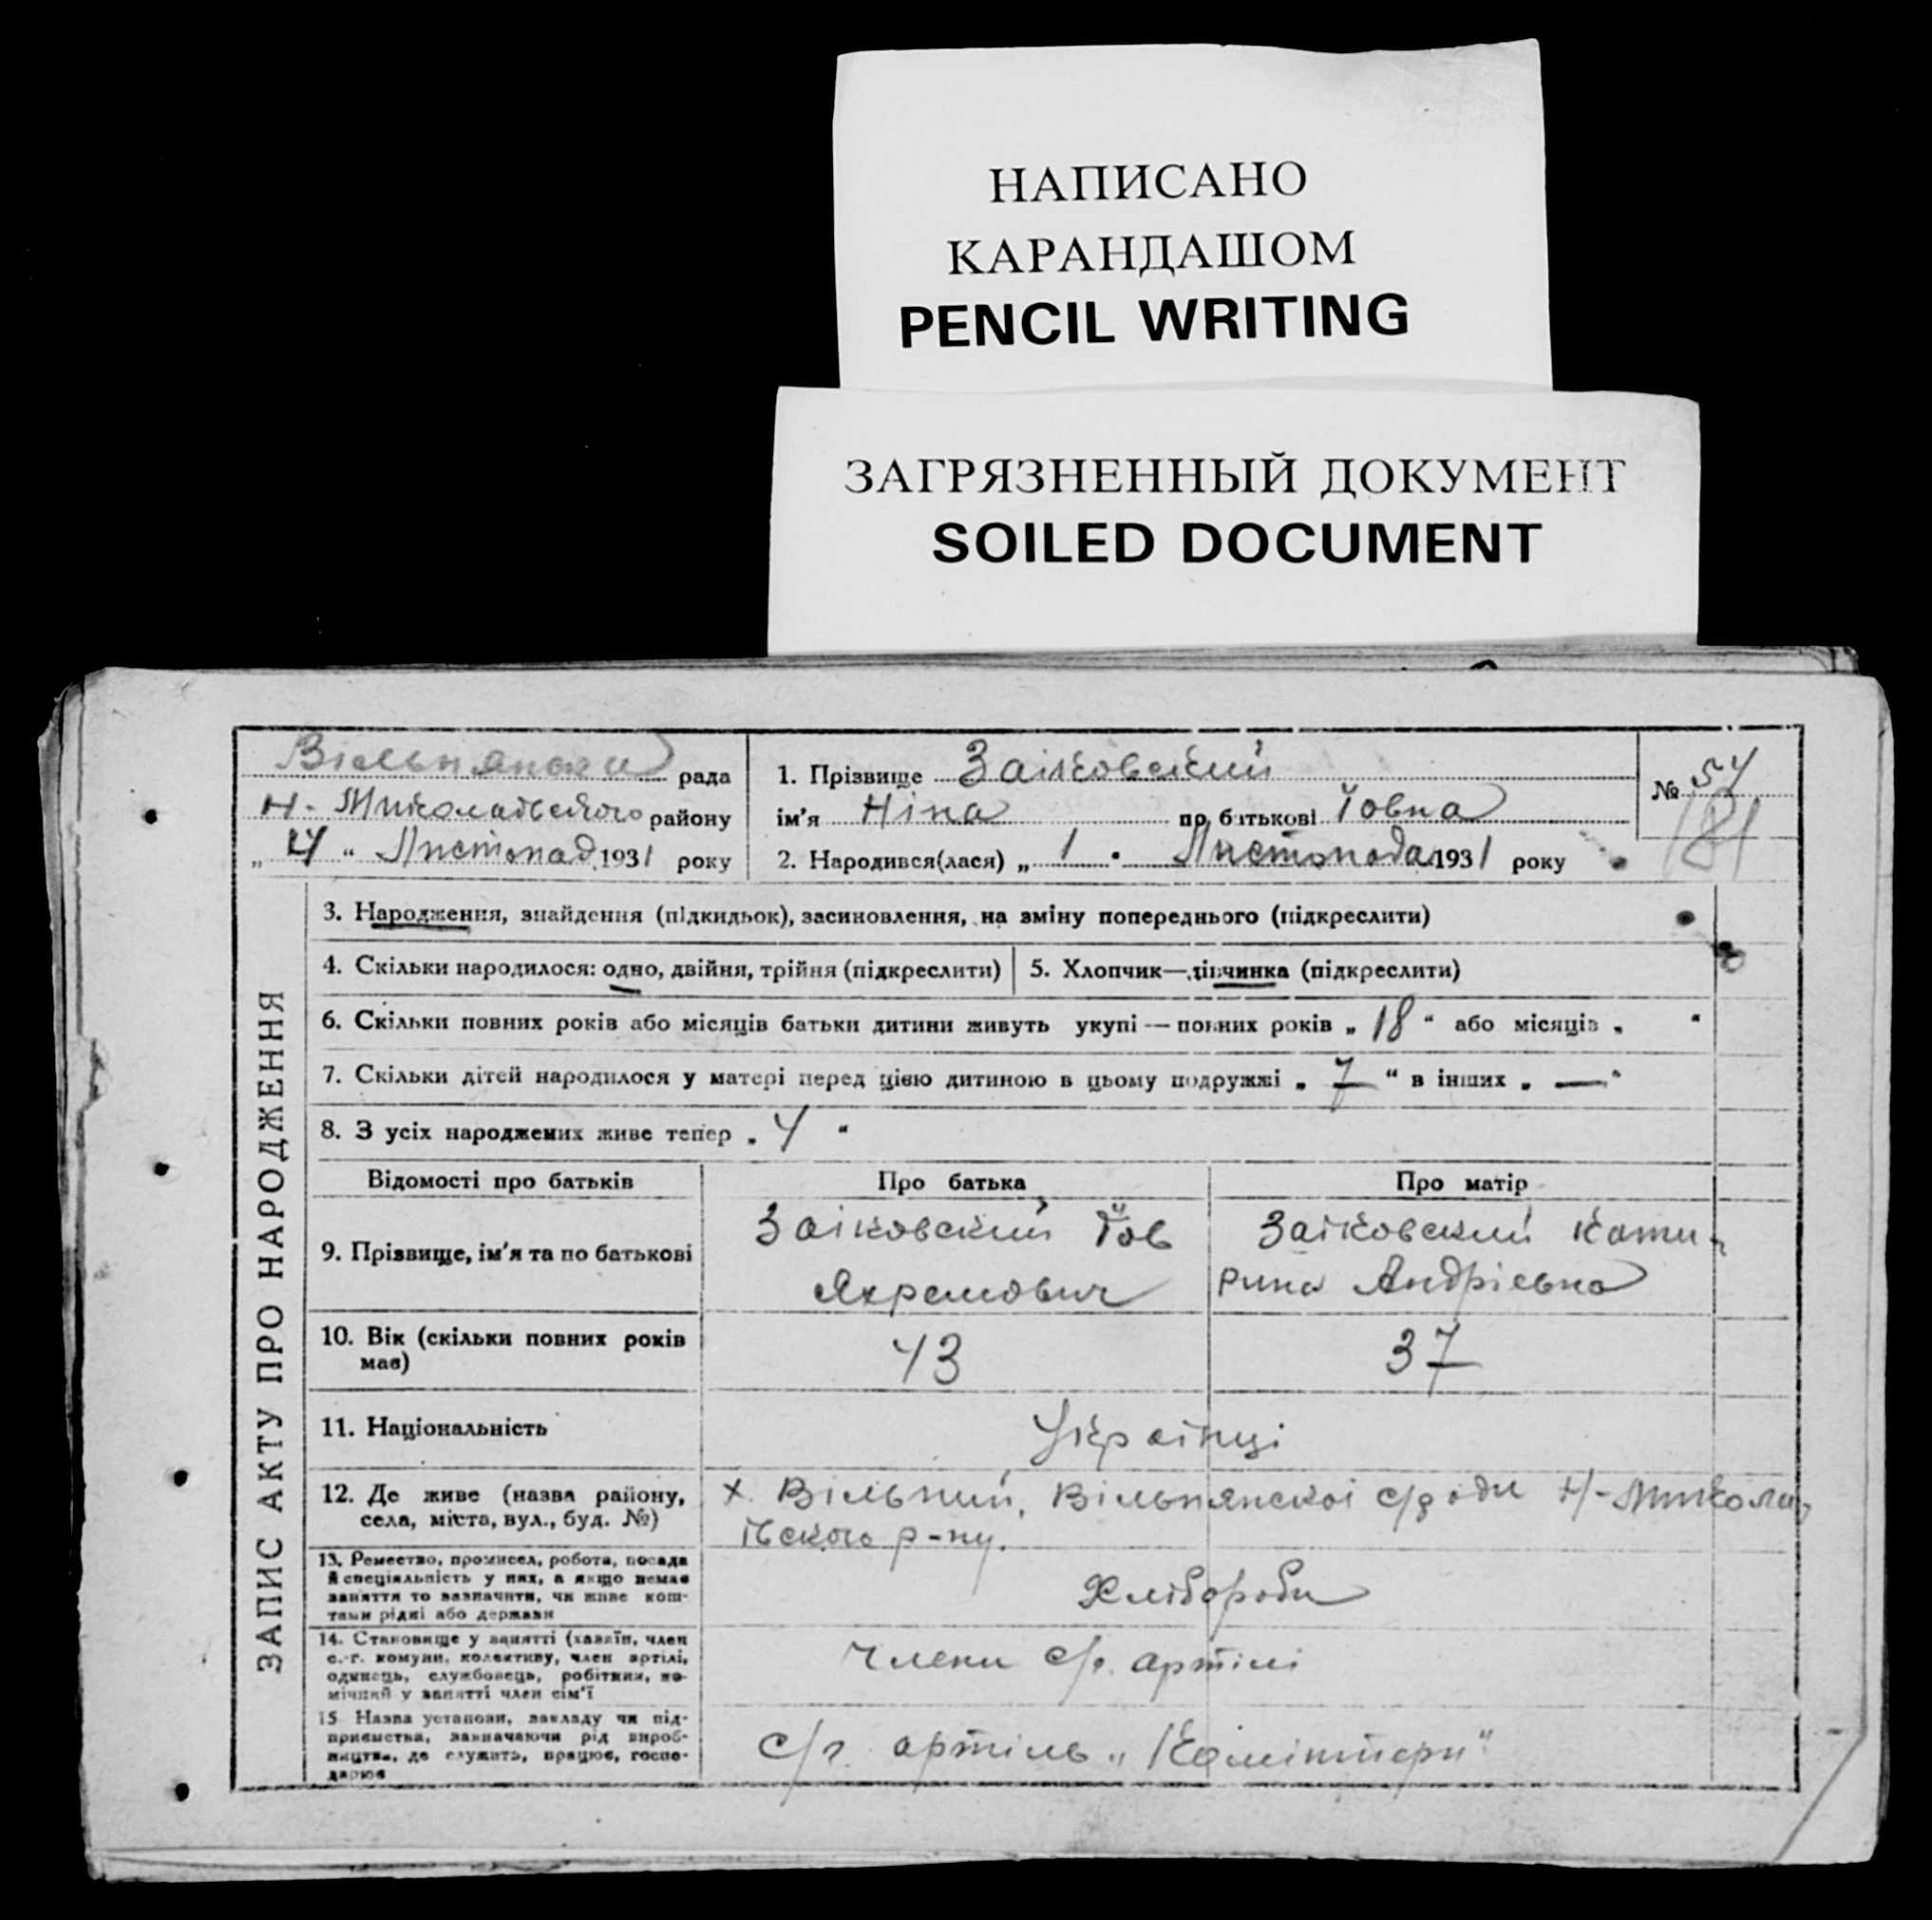 НАПИСАНО
КАРАНДАШОМ
PENCIL WRITING
ЗАГРЯЗНЕННЫЙ ДОКУМЕНТ
SOILED DOCUMENT
ЗАПИС АКТУ ПРО НАРОДЖЕННЯ
Вільнянска рада
Н-Миколаівского району
„ 4 “ Листопад 1931 року
1. Прізвище Заіковский
ім'я Ніна по батькові Йовна
2. Народився(лася) „ 1 “ Листопада 1931 року
№ 54
181
3. Народження, знайдення (підкидьок), засиновлення, на зміну попереднього (підкреслити)
4. Скільки народилося: одно, двійня, трійня (підкреслити)
5. Хлопчик—дівчинка (підкреслити)
6. Скільки повних років або місяців батьки дитини живуть укупі — повних років „ 18 “ або місяців „ “
7. Скільки дітей народилося у матері перед цією дитиною в цьому подружжі „ 7 “ в інших „ — “
8. З усіх народжених живе тепер „ 4 “
Відомості про батьків Про батька Про матір
9. Прізвище, ім'я та по батькові
Заіковский Йов
Яхремович
Заіковский Кати-
рина Андріевна
10. Вік (скільки повних років
має)
43 37
11. Національність Українці
12. Де живе (назва району,
села, міста, вул., буд. №)
х. Вільний, Вільнянскоі с/ради Н-Микола-
івского р-ну.
13. Ремество, промисел, робота, посада
й спеціяльність у них, а якщо немає
заняття то зазначити, чи живе кош-
тами рідні або держави
Хлібороби
14. Становище у занятті (хазяїн, член
с.-г. комуни, колективу, член артілі,
одинець, службовець, робітник, по-
мічний у занятті член сім'ї
Члени с/г. артілі
15. Назва установи, закладу чи під-
приємства, зазначаючи рід вироб-
ництва, де служить, працює, госпо-
дарює
с/г. артіль „Комінтерн“